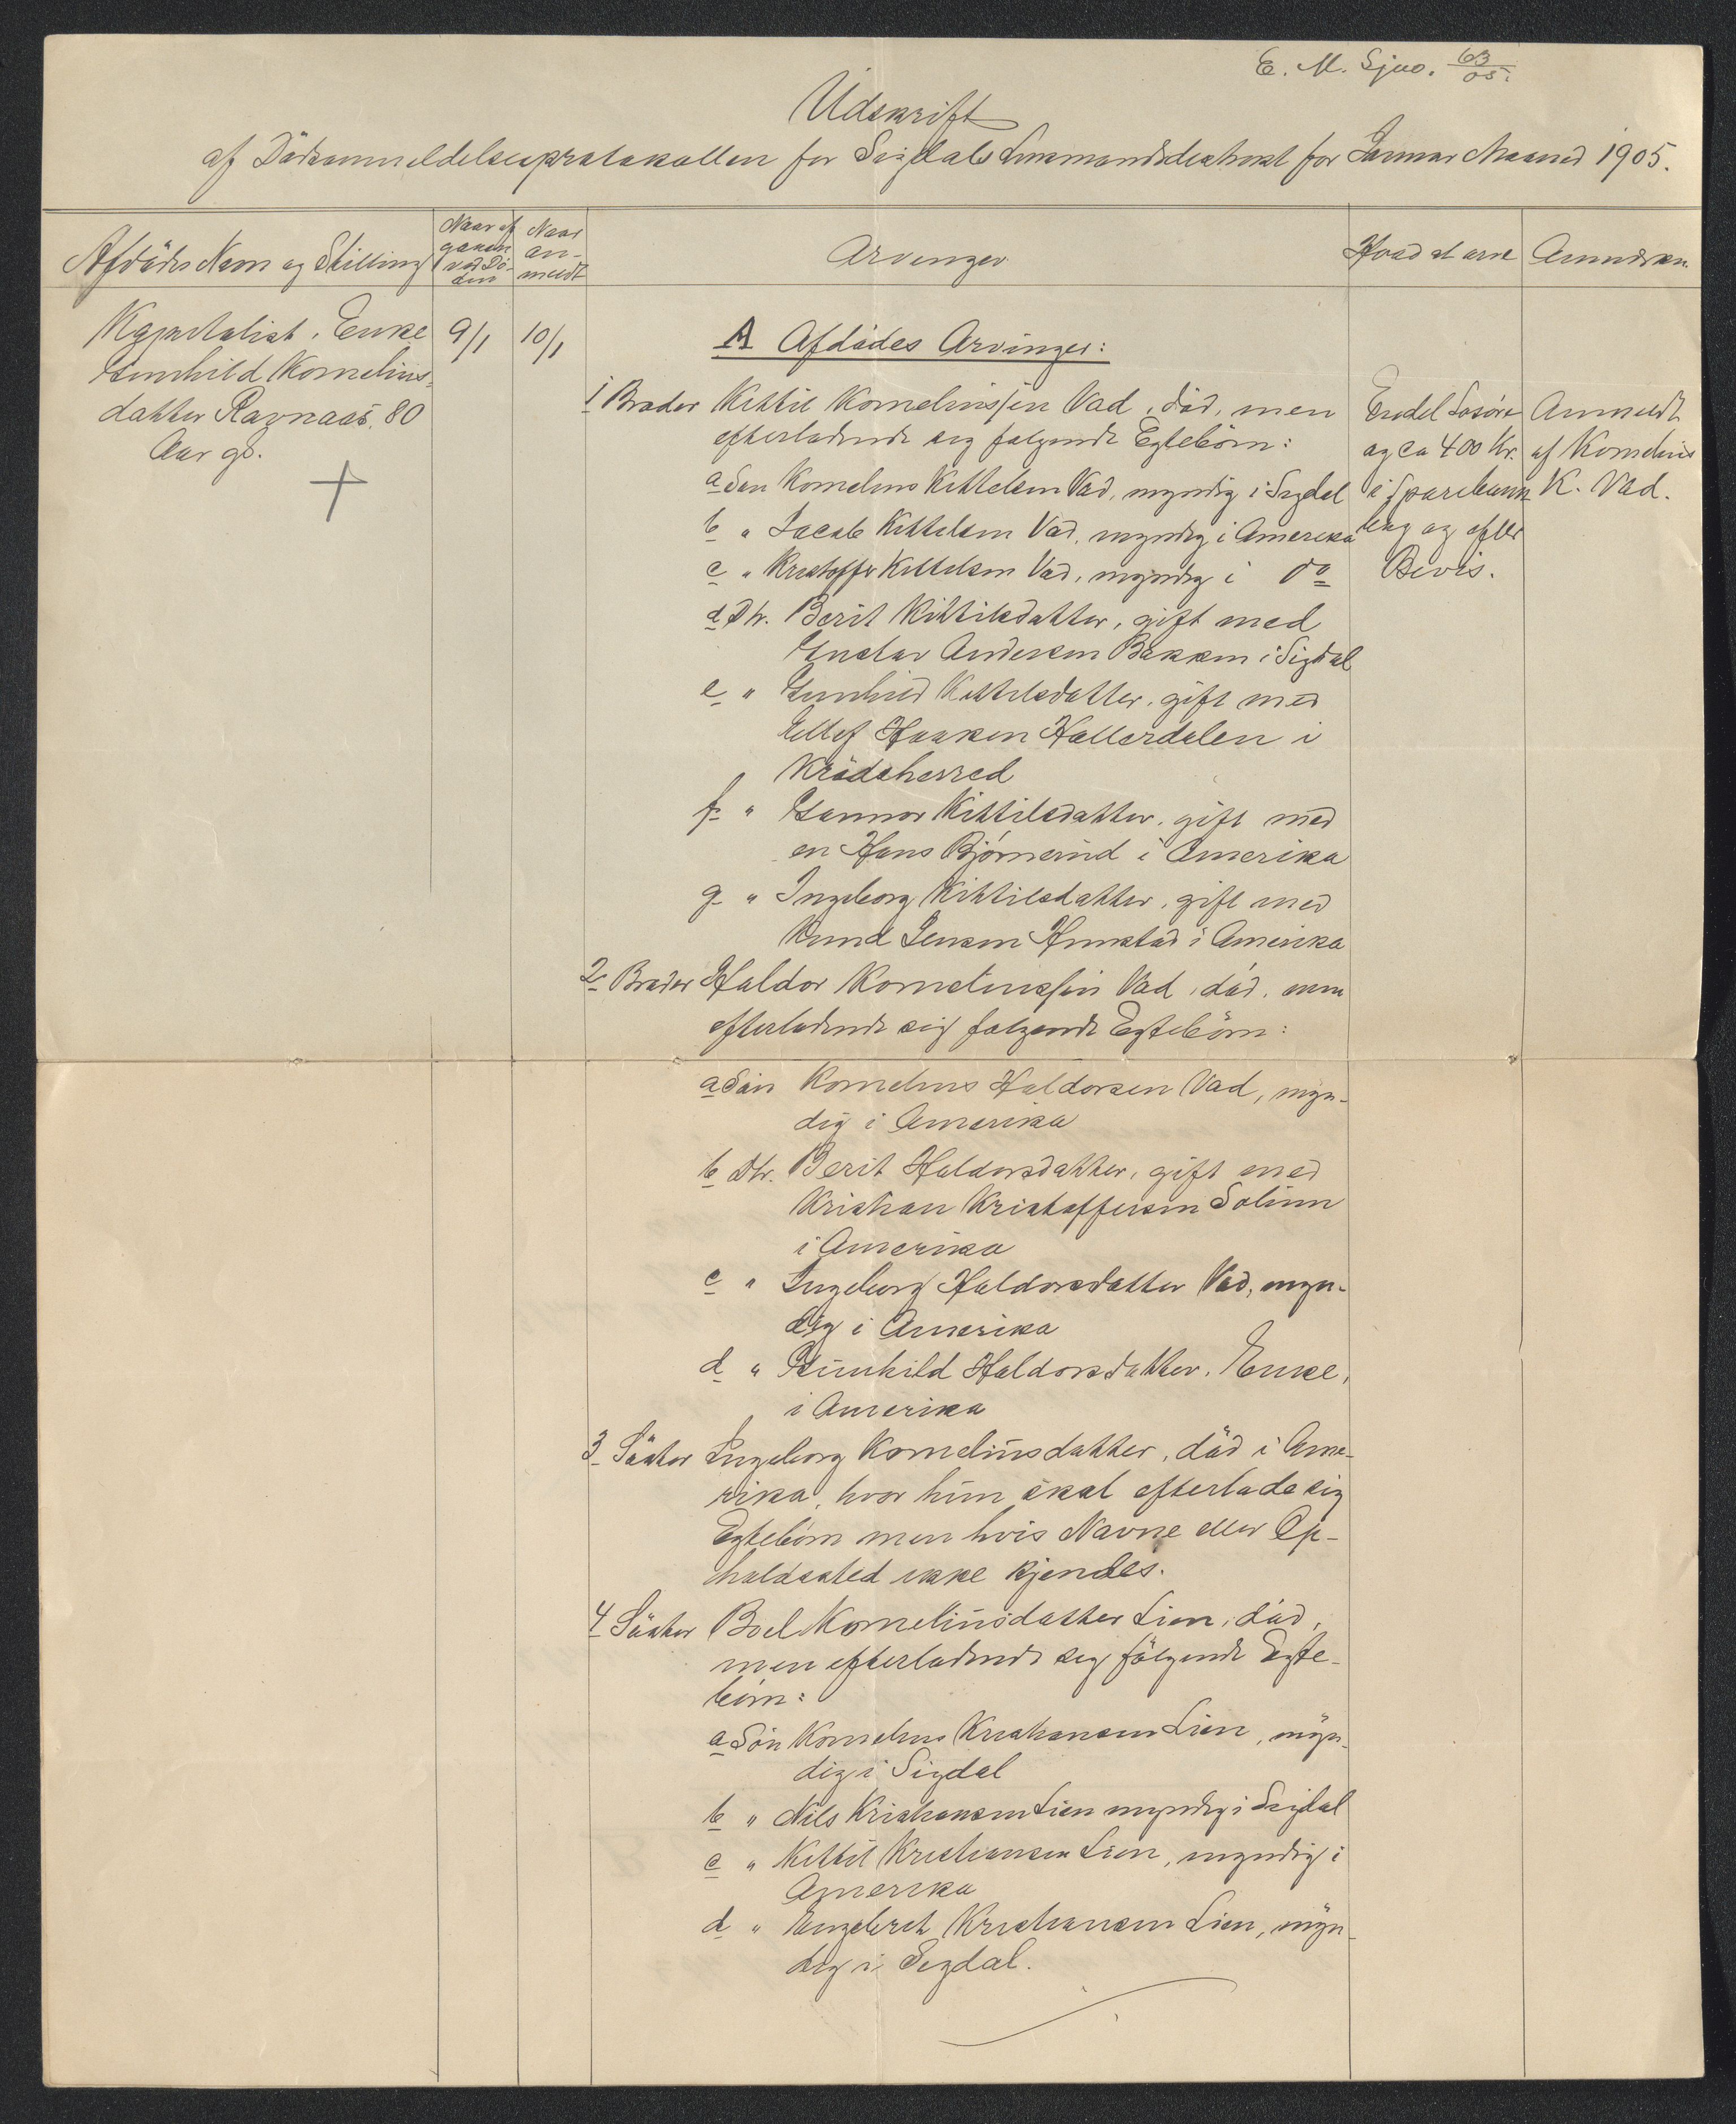 E. M. Sjno. 63/05.
Udskrift
af Dödsanmeldelsesprotokollen for Sigdals Lensmandsdistrikt for Januar Maaned 1905.
Afdödes Navn og Stilling
Naar af
gaaen
ved Dö-
den
Naar
an-
meldt
Arvinger
Hvad at arve
Anmærkn.
Kapitalist, Enke
Gunhild Kornelius-
datter Ravnaas, 80
Aar gl.
9/1
10/1
A Afdödes Arvinger:
1 Broder Kittil Korneliussen Vad, död, men
efterladende sig følgende Egtebörn:
a Sön Kornelius Kittelsen Vad, myndig i Sigdal
b " Jacob Kittelsen Vad, myndig i Amerika
c " Kristoffer Kittelsen Vad, myndig i do
d Dtr. Berit Kittilsdatter, gift med
Gustav Andersen Bakken i Sigdal
e " Gunhild Kittilsdatter, gift med
Ellef Haaken Hallardalen i
Krödsherred
f " Gunnor Kittilsdatter, gift med
en Hans Björnerud i Amerika
g " Ingeborg Kittilsdatter, gift med
Knud Jensen Hunstad i Amerika
2 Broder Haldor Korneliussen Vad, död, men
efterladende sig følgende Egtebörn:
a Sön Kornelius Haldorsen Vad, myn-
dig i Amerika
b Dtr. Berit Haldorsdatter, gift med
Kristian Kristoffersen Solum
i Amerika
c " Ingeborg Haldorsdatter Vad, myn-
dig i Amerika
d " Gunhild Haldorsdatter, Enke,
i Amerika
3 Söster Ingeborg Korneliusdatter, död i Ame-
rika, hvor hun skal efterlade sig
Egtebörn men hvis Navne eller Op-
holdssted ikke kjendes.
4 Söster Boel Korneliusdatter Lien, död,
men efterladende sig fölgende Egte-
börn:
a Sön Kornelius Kristiansen Lien, myn-
dig i Sigdal
b " Nils Kristiansen Lien myndig i Sigdal
c " Kittil Kristiansen Lien, myndig i
Amerika
d " Engebret Kristiansen Lien, myn-
dig i Sigdal.
Endel Lösöre
og ca 400 Kr.
i Sparebank
og efter
Bevis.
Anmeldt
af Kornelius
K. Vad.